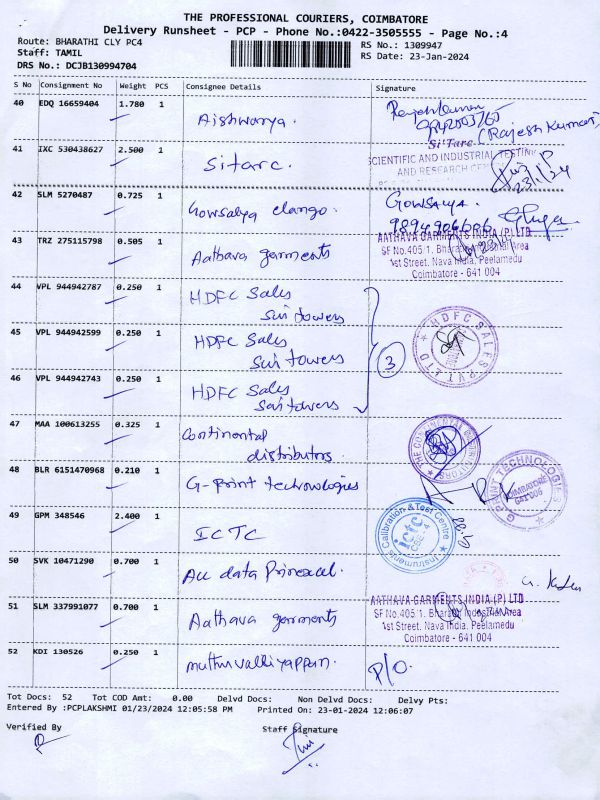 THE PROFESSIONAL COURIERS, COIMBATORE
Delivery Runsheet - PCP - Phone No.:0422-3505555 - Page No.:4
Route: BHARATHI CLY PC4
RS No.: 1309947
Staff: TAMIL
RS Date: 23-Jan-2024
DRS No.: DCJB130994704
S No Consignment No Weight PCS Consignee Details Signature
40 EDQ 16659404 1.780 1 Aishwarya. Rajeshkumar
9842003760
(Rajesh Kumar)
41 IXC 530438627 2.500 1 Sitarc. Si'Tarc
SCIENTIFIC AND INDUSTRIAL TESTING
AND RESEARCH
23/1/24
42 SLM 5270487 0.725 1 Gowsalya elango. Gowsalya.
9894906006
43 TRZ 275115798 0.505 1 Aathava garments AATHAVA GARMENTS INDIA (P) LTD
SF No.405/1, Bharathi Industrial Area
1st Street, Nava India, Peelamedu
Coimbatore - 641 004
44 VPL 944942787 0.250 1 HDFC Sales
Sri towers
45 VPL 944942599 0.250 1 HDFC Sales
Sri towers
3
HDFC SALES PVT LTD
46 VPL 944942743 0.250 1 HDFC Sales
Sri towers
47 MAA 100613255 0.325 1 Continental
distributors.
THE CONTINENTAL DISTRIBUTORS
48 BLR 6151470968 0.210 1 G-Print technologies
G PRINT TECHNOLOGIES
COIMBATORE
641 006
49 GPM 348546 2.400 1 ICTC
Instruments Calibration & Test Centre
ictc
CBE-4
50 SVK 10471290 0.700 1 All data Prinexcel.
51 SLM 337991077 0.700 1 Aathava garments AATHAVA GARMENTS INDIA (P) LTD
SF No.405/1, Bharathi Industrial Area
1st Street, Nava India, Peelamedu
Coimbatore - 641 004
52 KDI 130526 0.250 1 muthuvalliyappan. P/O.
Tot Docs: 52 Tot COD Amt: 0.00 Delvd Docs: Non Delvd Docs: Delvy Pts:
Entered By :PCPLAKSHMI 01/23/2024 12:05:58 PM Printed On: 23-01-2024 12:06:07
Verified By
Staff Signature